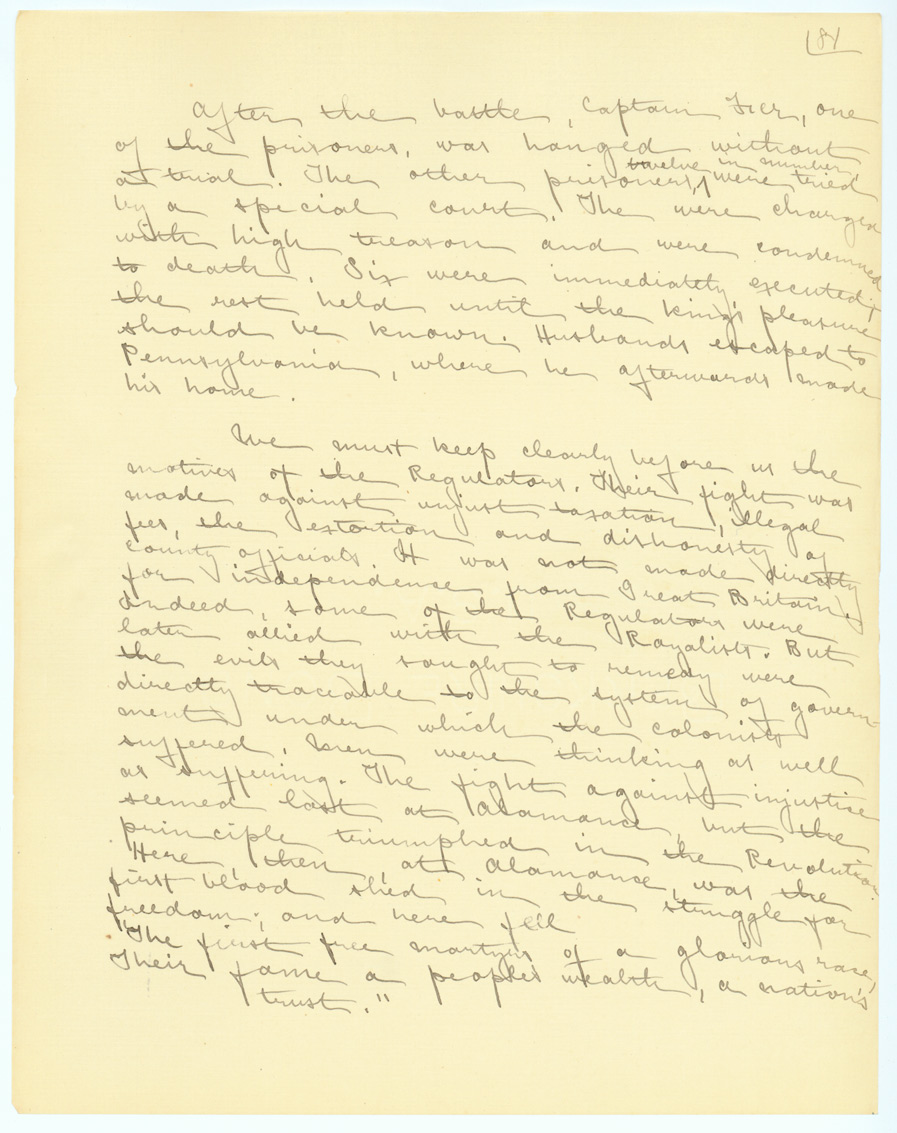 181
After the battle, Captain Few, one
of the prisoners, was hanged without
a trial. The other prisoners, twelve in number, were tried
by a special court. The were charged
with high treason and were condemned
to death. Six were immediately executed;
the rest held until the king's pleasure
should be known. Husbands escaped to
Pennsylvania, where he afterwards made
his home.
We must keep clearly before us the
motives of the Regulators. Their fight was
made against unjust taxation, illegal
fees, the extortion and dishonesty of
county officials It was not made directly
for independence from Great Britain.
Indeed, some of the Regulators were
later allied with the Royalists. But
the evils they sought to remedy were
directly traceable to the system of govern-
ment under which the colonists
suffered. Men were thinking as well
as suffering. The fight against injustice
seemed lost at Alamance, but the
principle triumphed in the Revolution.
Here, then, at Alamance, was the
first blood shed in the struggle for
freedom; and here fell
"The first free martyrs of a glorious race,
Their fame a people's wealth, a nation's
trust."